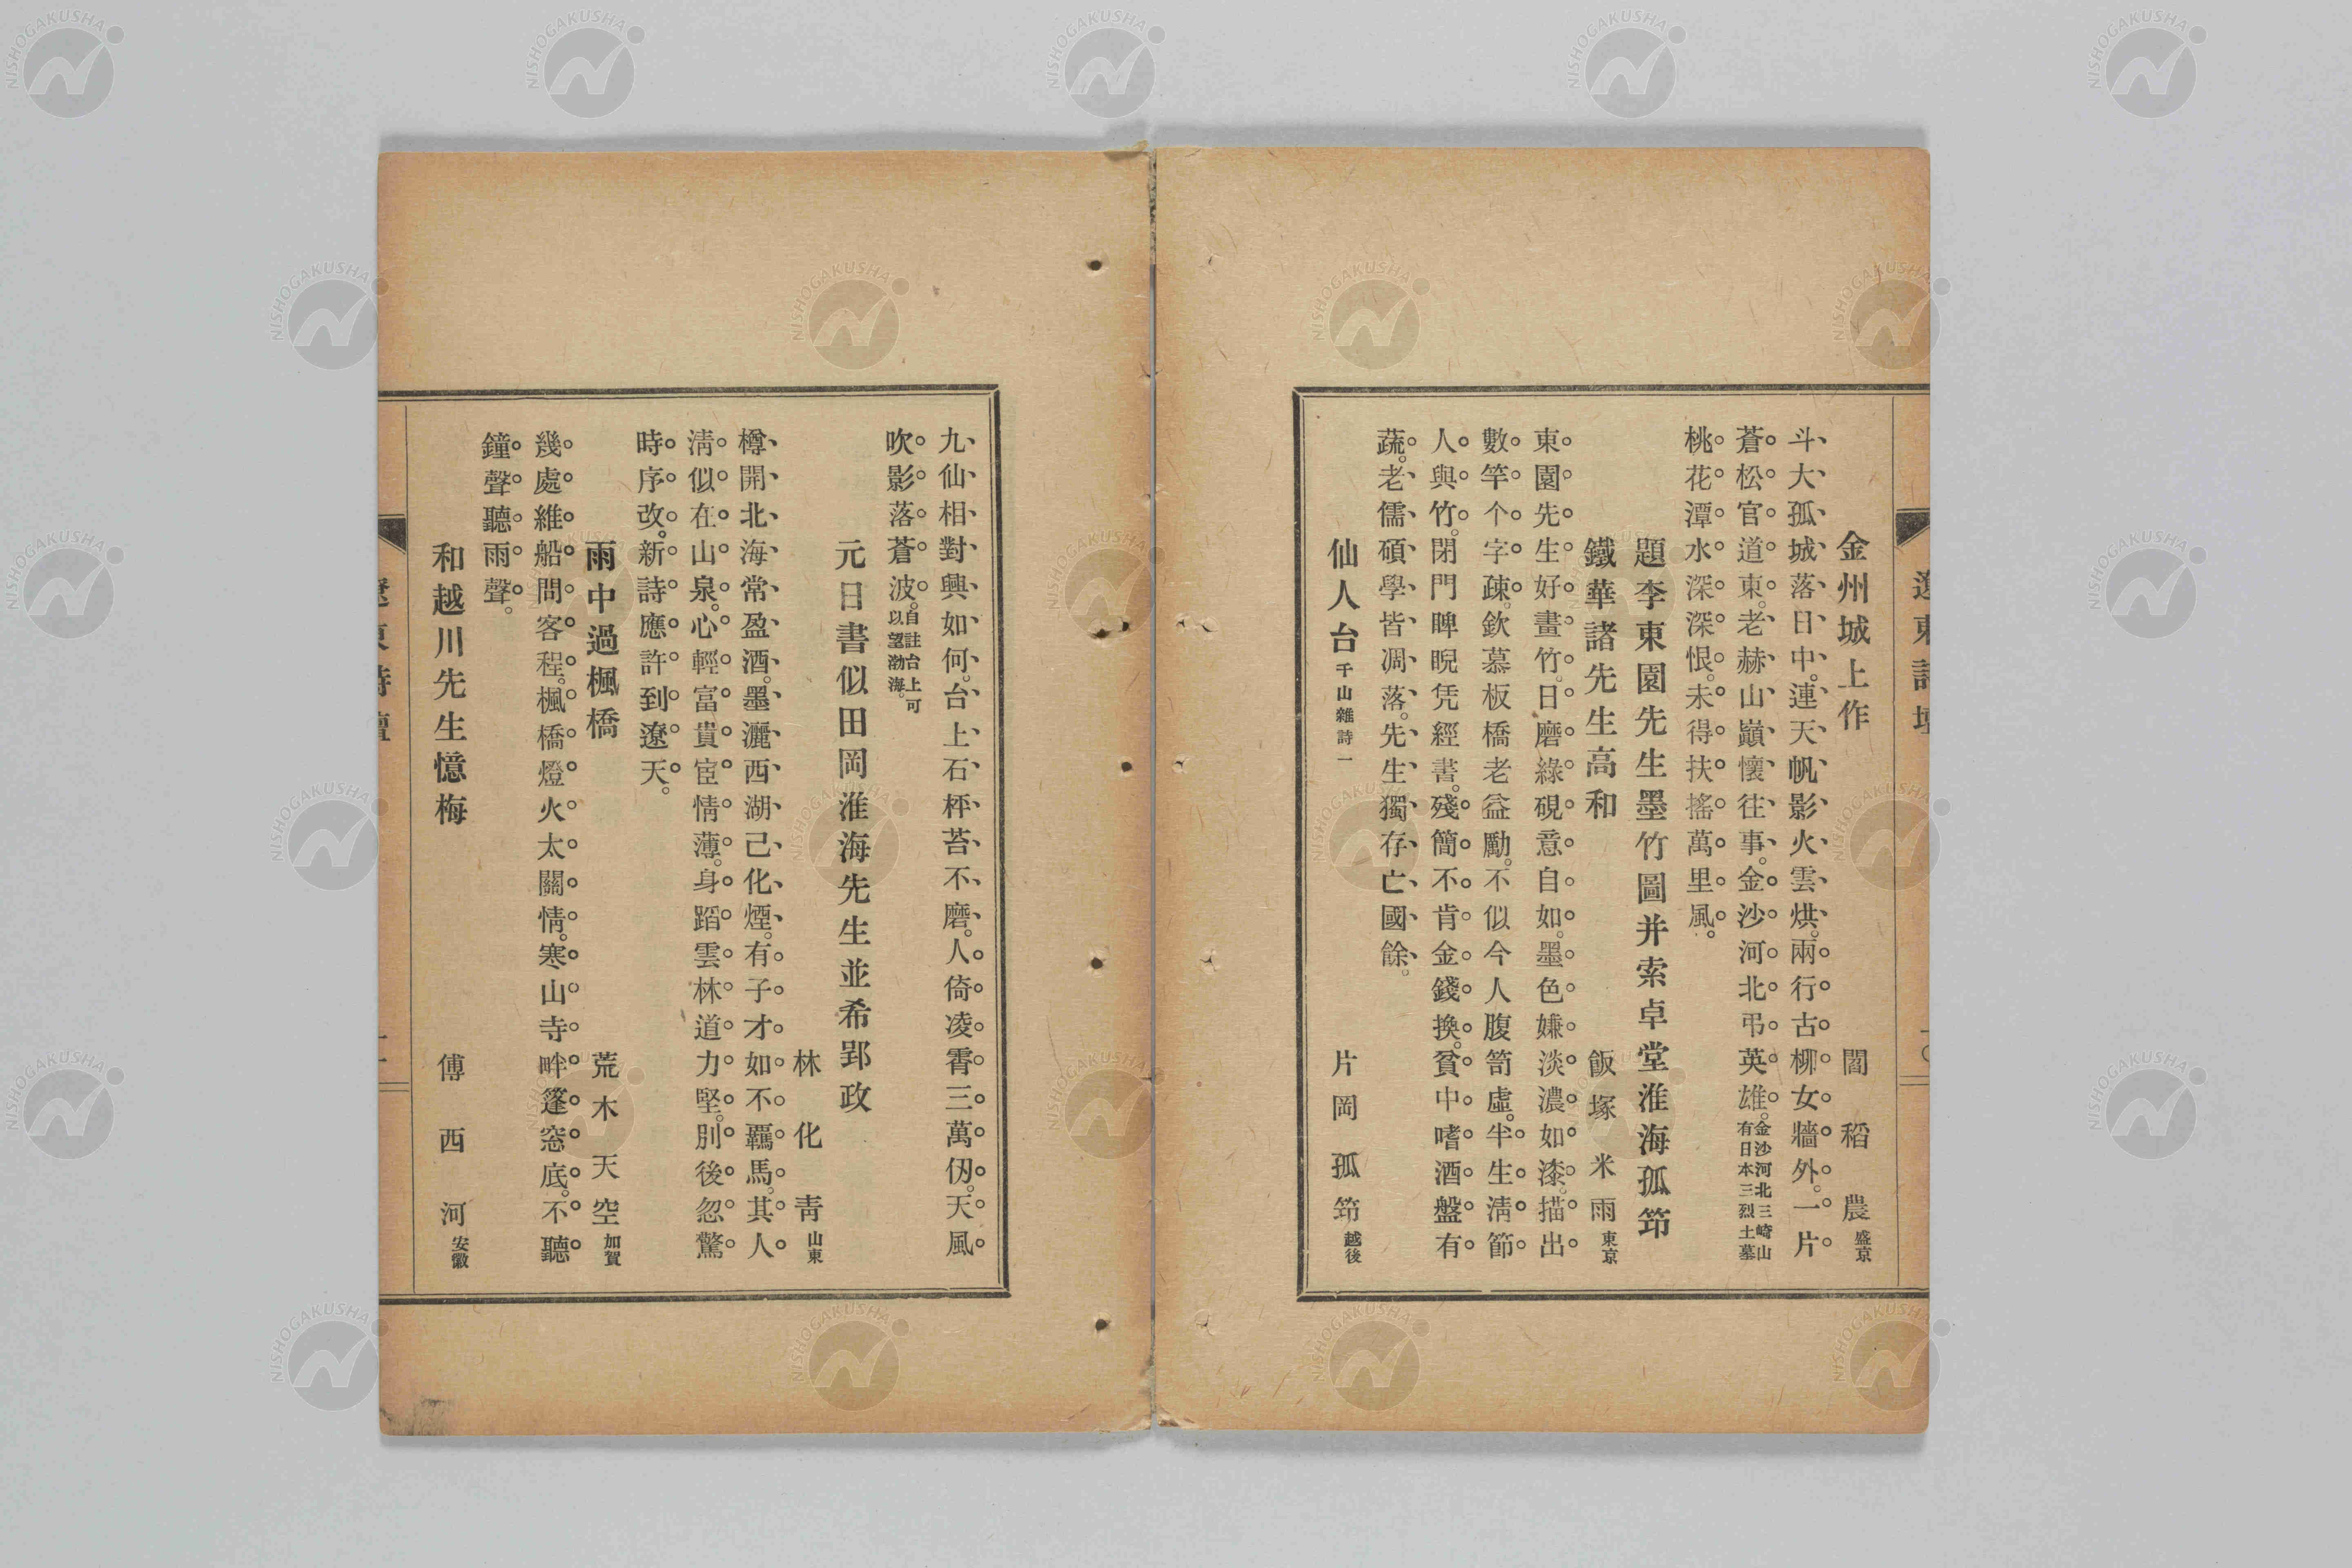 遼東詩壇
一〇
金州城上作
閻稻農 盛京
斗大孤城落日中。連天帆影火雲烘。兩行古柳女牆外。一片
蒼松官道東。老赫山巔懷往事。金沙河北弔英雄。金沙河北三崎山有日本三烈士墓
桃花潭水深深恨。未得扶搖萬里風。
題李東園先生墨竹圖并索卓堂淮海孤笻
鐵華諸先生高和
飯塚米雨 東京
東園先生好畫竹。日磨綠硯意自如。墨色嫌淡濃如漆。描出
數竿个字疎。欽慕板橋老益勵。不似今人腹笥虛。半生淸節
人與竹。閉門睥睨凭經書。殘簡不肯金錢換。貧中嗜酒盤有
蔬。老儒碩學皆凋落。先生獨存亡國餘。
仙人台 千山雜詩一
片岡孤笻 越後
九仙相對興如何。台上石枰苔不磨。人倚凌霄三萬仞。天風
吹影落蒼波。自註台上可以望渤海。
元日書似田岡淮海先生並希郢政
林化靑 山東
樽開北海常盈酒。墨灑西湖己化煙。有子才如不覊馬。其人
淸似在山泉。心輕富貴宦情薄。身蹈雲林道力堅。別後忽驚
時序改。新詩應許到遼天。
雨中過楓橋
荒木天空 加賀
幾處維船問客程。楓橋燈火太關情。寒山寺畔篷窓底。不聽
鐘聲聽雨聲。
和越川先生憶梅
傅西河 安徽
遼東詩壇